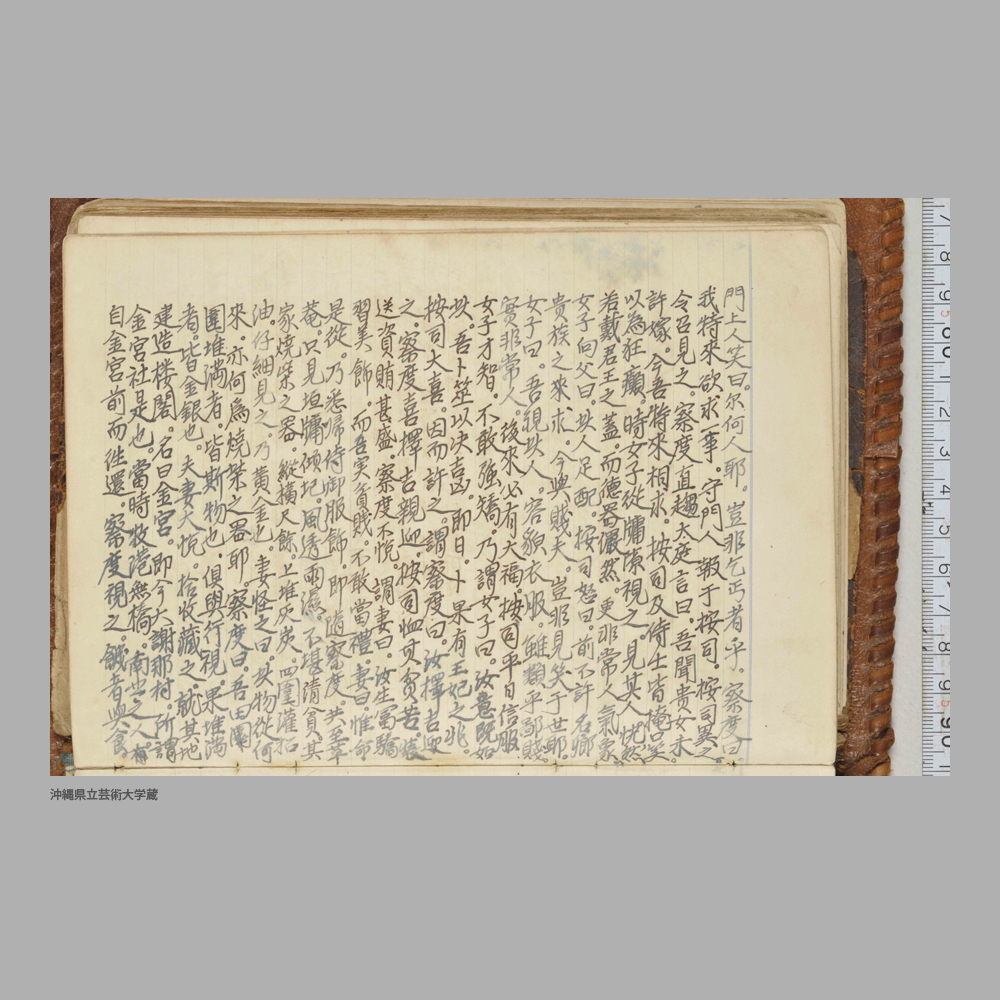 門上人笑曰。尔何人耶。豈非乞丐者乎。察度曰。
我特來欲求一事。守門人報于按司。按司異之。
令召見之。察度直趨太庭言曰。吾聞貴女未
許嫁。今吾特來相求。按司及侍士皆掩口笑。
以為狂癲。時女子從牖隙視之。見其人恍然
若戴君王之蓋。而德器儼然。更非常人氣象。
女子向父曰。此人足配。按司怒曰。前不許名鄉
貴族之來求。今與賤夫。豈非見笑于世耶。
女子曰。吾視此人。容貌衣服。雖類乎鄙賤。
實非常人。後來必有大福。按司平日信服
女子才智。不敢強矯。乃謂女子曰。汝意既如
此。吾卜筮以决吉凶。即日。卜果有王妃之兆。
按司大喜。因而許之。謂察度曰。汝擇吉迎
之。察度喜擇吉親迎。按司恤其貧苦。
送資賄甚盛。察度不悦。謂妻曰。汝生富驕
習美飾。而吾実貧賎。不敢當禮。妻曰。惟命
是從。乃悉歸侍御服飾。即随察度。共至茅
菴。只見垣牗傾圮。風透雨濕。不堪清貧。其
家焼柴之器。縦横尺餘。上堆灰炭。四圍
油。仔細見之。乃黄金也。妻怪之曰。此物從何
來。亦何為焼柴之器耶。察度曰。吾田園
圍堆満者。皆斯物也。俱與行視。果堆満
者。皆金銀也。夫妻大悦。拾收藏之。就其地
建造楼閣。名曰金宮。即今大謝那村。所謂
金宮社是也。當時牧港無橋。南北之人
自金宮前而徃還。察度視之。餓者與食
沖縄県立芸術大学蔵